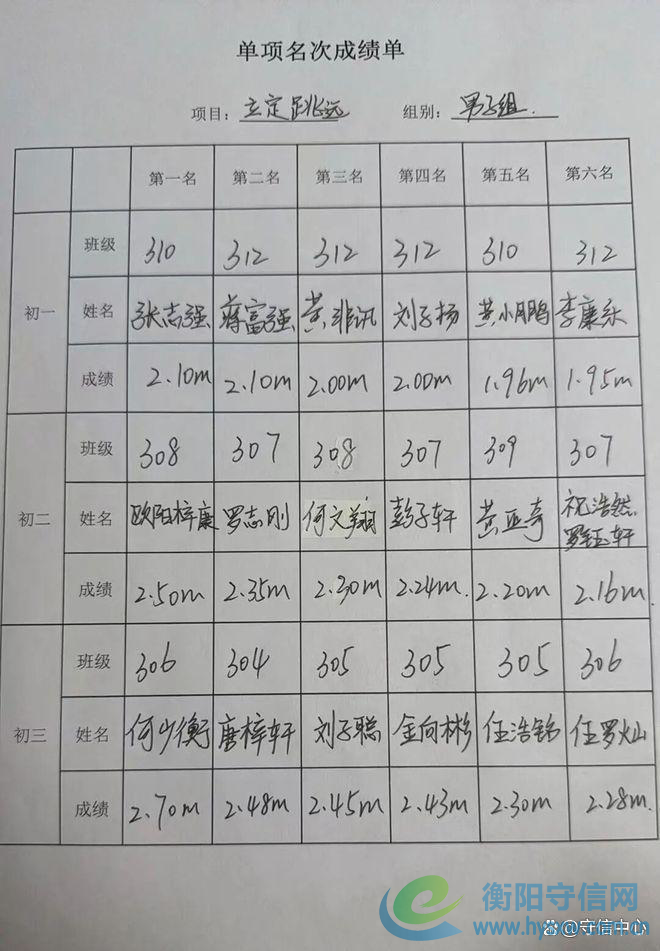 单项名次成绩单
项目: 立定跳远 组别: 男子组.
第一名 第二名 第三名 第四名 第五名 第六名
初一
班级 310 312 312 312 310 312
姓名 张志强 蒋富强 黄非讯 刘子扬 黄小鹏 李康乐
成绩 2.10m 2.10m 2.00m 2.00m 1.96m 1.95m
初二
班级 308 307 308 307 309 307
姓名 欧阳梓康 罗志刚 何文翔 彭子轩 黄亚奇 祝浩然
罗钰轩
成绩 2.50m 2.35m 2.30m 2.24m. 2.20m 2.16m.
初三
班级 306 304 305 305 305 306
姓名 何少衡 唐梓轩 刘子聪 金向彬 任浩铭 任罗灿
成绩 2.70m 2.48m 2.45m 2.43m 2.30m 2.28m.
衡阳守信网
@守信中心